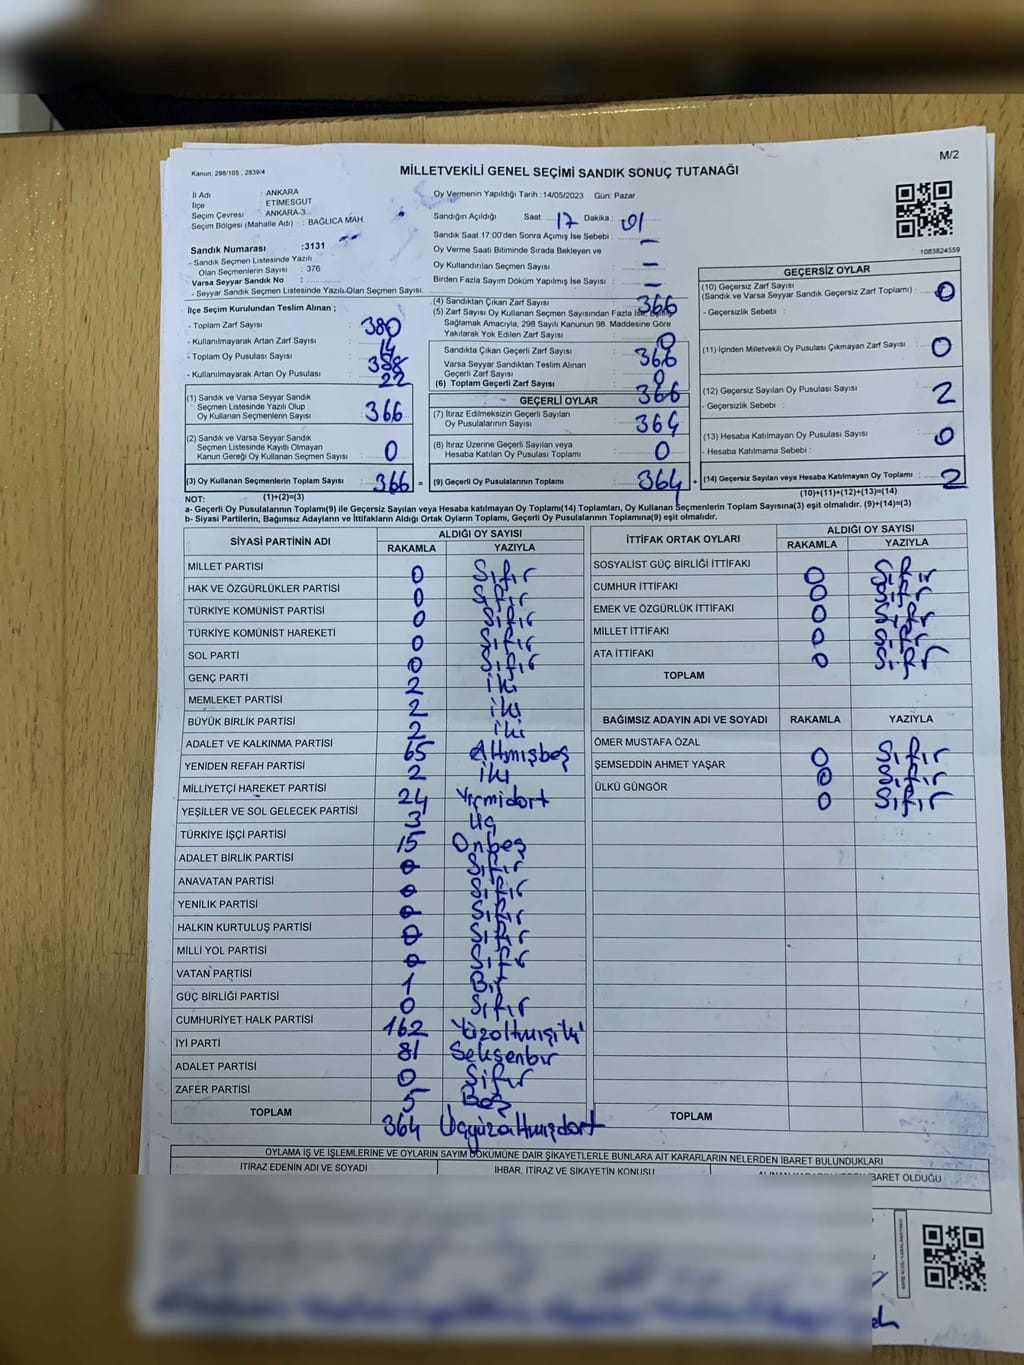 M/2
Kanun, 298/105 , 2839/4
MİLLETVEKİLİ GENEL SEÇİMİ SANDIK SONUÇ TUTANAĞI
İl Adı : ANKARA
İlçe : ETİMESGUT
Seçim Çevresi : ANKARA-3
Seçim Bölgesi (Mahalle Adı) : BAĞLICA MAH.
Sandık Numarası :3131
- Sandık Seçmen Listesinde Yazılı
Olan Seçmenlerin Sayısı : 376
Varsa Seyyar Sandık No :
- Seyyar Sandık Seçmen Listesinde Yazılı Olan Seçmen Sayısı:
Oy Vermenin Yapıldığı Tarih :14/05/2023 Gün: Pazar
Sandığın Açıldığı Saat 17 Dakika : 01
Sandık Saat 17:00'den Sonra Açımış İse Sebebi : —
Oy Verme Saati Bitiminde Sırada Bekleyen ve
Oy Kullandırılan Seçmen Sayısı : —
Birden Fazla Sayım Döküm Yapılmış İse Sayısı : —
1083824559
İlçe Seçim Kurulundan Teslim Alınan ;
- Toplam Zarf Sayısı : 380
- Kullanılmayarak Artan Zarf Sayısı : 14
- Toplam Oy Pusulası Sayısı : 388
- Kullanılmayarak Artan Oy Pusulası : 22
(1) Sandık ve Varsa Seyyar Sandık
Seçmen Listesinde Yazılı Olup
Oy Kullanan Seçmenlerin Sayısı : 366
(2) Sandık ve Varsa Seyyar Sandık
Seçmen Listesinde Kayıtlı Olmayan
Kanun Gereği Oy Kullanan Seçmen Sayısı : 0
(3) Oy Kullanan Seçmenlerin Toplam Sayısı : 366 =
(4) Sandıktan Çıkan Zarf Sayısı : 366
(5) Zarf Sayısı Oy Kullanan Seçmen Sayısından Fazla İse, Eşitliği
Sağlamak Amacıyla, 298 Sayılı Kanunun 98. Maddesine Göre
Yakılarak Yok Edilen Zarf Sayısı : 0
Sandıkta Çıkan Geçerli Zarf Sayısı : 366
Varsa Seyyar Sandıktan Teslim Alınan
Geçerli Zarf Sayısı : 0
(6) Toplam Geçerli Zarf Sayısı : 366
GEÇERLİ OYLAR
(7) İtiraz Edilmeksizin Geçerli Sayılan
Oy Pusulalarının Sayısı : 364
(8) İtiraz Üzerine Geçerli Sayılan veya
Hesaba Katılan Oy Pusulası Toplamı : 0
(9) Geçerli Oy Pusulalarının Toplamı : 364 +
GEÇERSİZ OYLAR
(10) Geçersiz Zarf Sayısı
(Sandık ve Varsa Seyyar Sandık Geçersiz Zarf Toplamı) : 0
- Geçersizlik Sebebi :
(11) İçinden Milletvekili Oy Pusulası Çıkmayan Zarf Sayısı : 0
(12) Geçersiz Sayılan Oy Pusulası Sayısı : 2
- Geçersizlik Sebebi :
(13) Hesaba Katılmayan Oy Pusulası Sayısı : 0
- Hesaba Katılmama Sebebi :
(14) Geçersiz Sayılan veya Hesaba Katılmayan Oy Toplamı : 2
NOT: (1)+(2)=(3) (10)+(11)+(12)+(13)=(14)
a- Geçerli Oy Pusulalarının Toplamı(9) ile Geçersiz Sayılan veya Hesaba Katılmayan Oy Toplamı(14) Toplamları, Oy Kullanan Seçmenlerin Toplam Sayısına(3) eşit olmalıdır. (9)+(14)=(3)
b- Siyasi Partilerin, Bağımsız Adayların ve İttifakların Aldığı Ortak Oyların Toplamı, Geçerli Oy Pusulalarının Toplamına(9) eşit olmalıdır.
SİYASİ PARTİNİN ADI ALDIĞI OY SAYISI
RAKAMLA YAZIYLA
MİLLET PARTİSİ 0 Sıfır
HAK VE ÖZGÜRLÜKLER PARTİSİ 0 Sıfır
TÜRKİYE KOMÜNİST PARTİSİ 0 Sıfır
TÜRKİYE KOMÜNİST HAREKETİ 0 Sıfır
SOL PARTİ 0 Sıfır
GENÇ PARTİ 2 iki
MEMLEKET PARTİSİ 2 iki
BÜYÜK BİRLİK PARTİSİ 2 iki
ADALET VE KALKINMA PARTİSİ 65 Altmışbeş
YENİDEN REFAH PARTİSİ 2 iki
MİLLİYETÇİ HAREKET PARTİSİ 24 Yirmidört
YEŞİLLER VE SOL GELECEK PARTİSİ 3 Üç
TÜRKİYE İŞÇİ PARTİSİ 15 Onbeş
ADALET BİRLİK PARTİSİ 0 Sıfır
ANAVATAN PARTİSİ 0 Sıfır
YENİLİK PARTİSİ 0 Sıfır
HALKIN KURTULUŞ PARTİSİ 0 Sıfır
MİLLİ YOL PARTİSİ 0 Sıfır
VATAN PARTİSİ 1 Bir
GÜÇ BİRLİĞİ PARTİSİ 0 Sıfır
CUMHURİYET HALK PARTİSİ 162 Yüzaltmışiki
İYİ PARTİ 81 Seksenbir
ADALET PARTİSİ 0 Sıfır
ZAFER PARTİSİ 5 Beş
TOPLAM 364 Üçyüzaltmışdört
İTTİFAK ORTAK OYLARI ALDIĞI OY SAYISI
RAKAMLA YAZIYLA
SOSYALİST GÜÇ BİRLİĞİ İTTİFAKI 0 Sıfır
CUMHUR İTTİFAKI 0 Sıfır
EMEK VE ÖZGÜRLÜK İTTİFAKI 0 Sıfır
MİLLET İTTİFAKI 0 Sıfır
ATA İTTİFAKI 0 Sıfır
TOPLAM
BAĞIMSIZ ADAYIN ADI VE SOYADI RAKAMLA YAZIYLA
ÖMER MUSTAFA ÖZAL 0 Sıfır
ŞEMSEDDİN AHMET YAŞAR 0 Sıfır
ÜLKÜ GÜNGÖR 0 Sıfır
TOPLAM
OYLAMA İŞ VE İŞLEMLERİNE VE OYLARIN SAYIM DÖKÜMÜNE DAİR ŞİKAYETLERLE BUNLARA AİT KARARLARIN NELERDEN İBARET BULUNDUKLARI
İTİRAZ EDENİN ADI VE SOYADI İHBAR, İTİRAZ VE ŞİKAYETİN KONUSU İBARET OLDUĞU